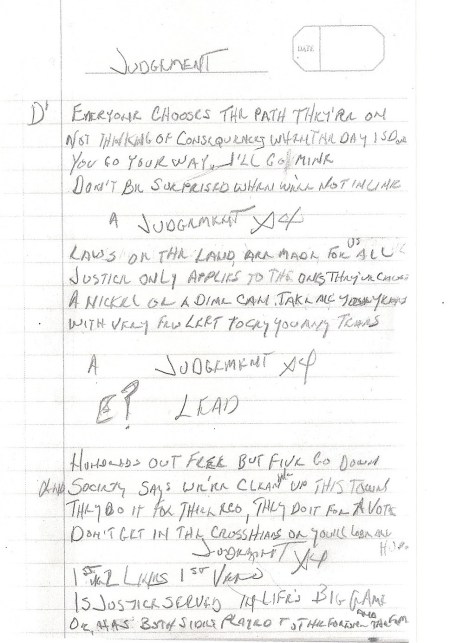 JUDGEMENT
DATE
D#
EVERYONE CHOOSES THE PATH THEY'RE ON
NOT THINKING OF CONSEQUENCES WHEN THE DAY IS DONE
YOU GO YOUR WAY, I'LL GO MINE
DON'T BE SURPRISED WHEN WE'RE NOT IN LINE
A JUDGEMENT X4
LAWS OF THE LAND ARE MADE FOR US ALL
JUSTICE ONLY APPLIES TO THE ONES THEY'VE
A NICKEL OR A DIME CAN TAKE ME YEARS
WITH VERY FEW LEFT TO CRY YOU ANY TEARS
A JUDGEMENT X4
E? LEAD
HUNDREDS OUT FREE BUT FIVE GO DOWN
AND SOCIETY SAYS WE'RE CLEANING UP THIS TOWN
THEY DO IT FOR THEIR EGO, THEY DO IT FOR A VOTE
DON'T GET IN THE CROSSHAIRS OR YOU'LL
JUDGEMENT X4
1ST 2 LINES 1ST VERSE
IS JUSTICE SERVED IN LIFE'S BIG GAME
OR HAS BOTH SIDES PLAYED IT FOR FORTUNE AND THE FAME